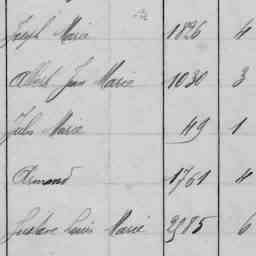 Joseph Marie 1896 4
Albert Jean Marie 1030 3
Jules Marie 49 1
Armand 1761 4
Gustave Louis Marie 2985 6